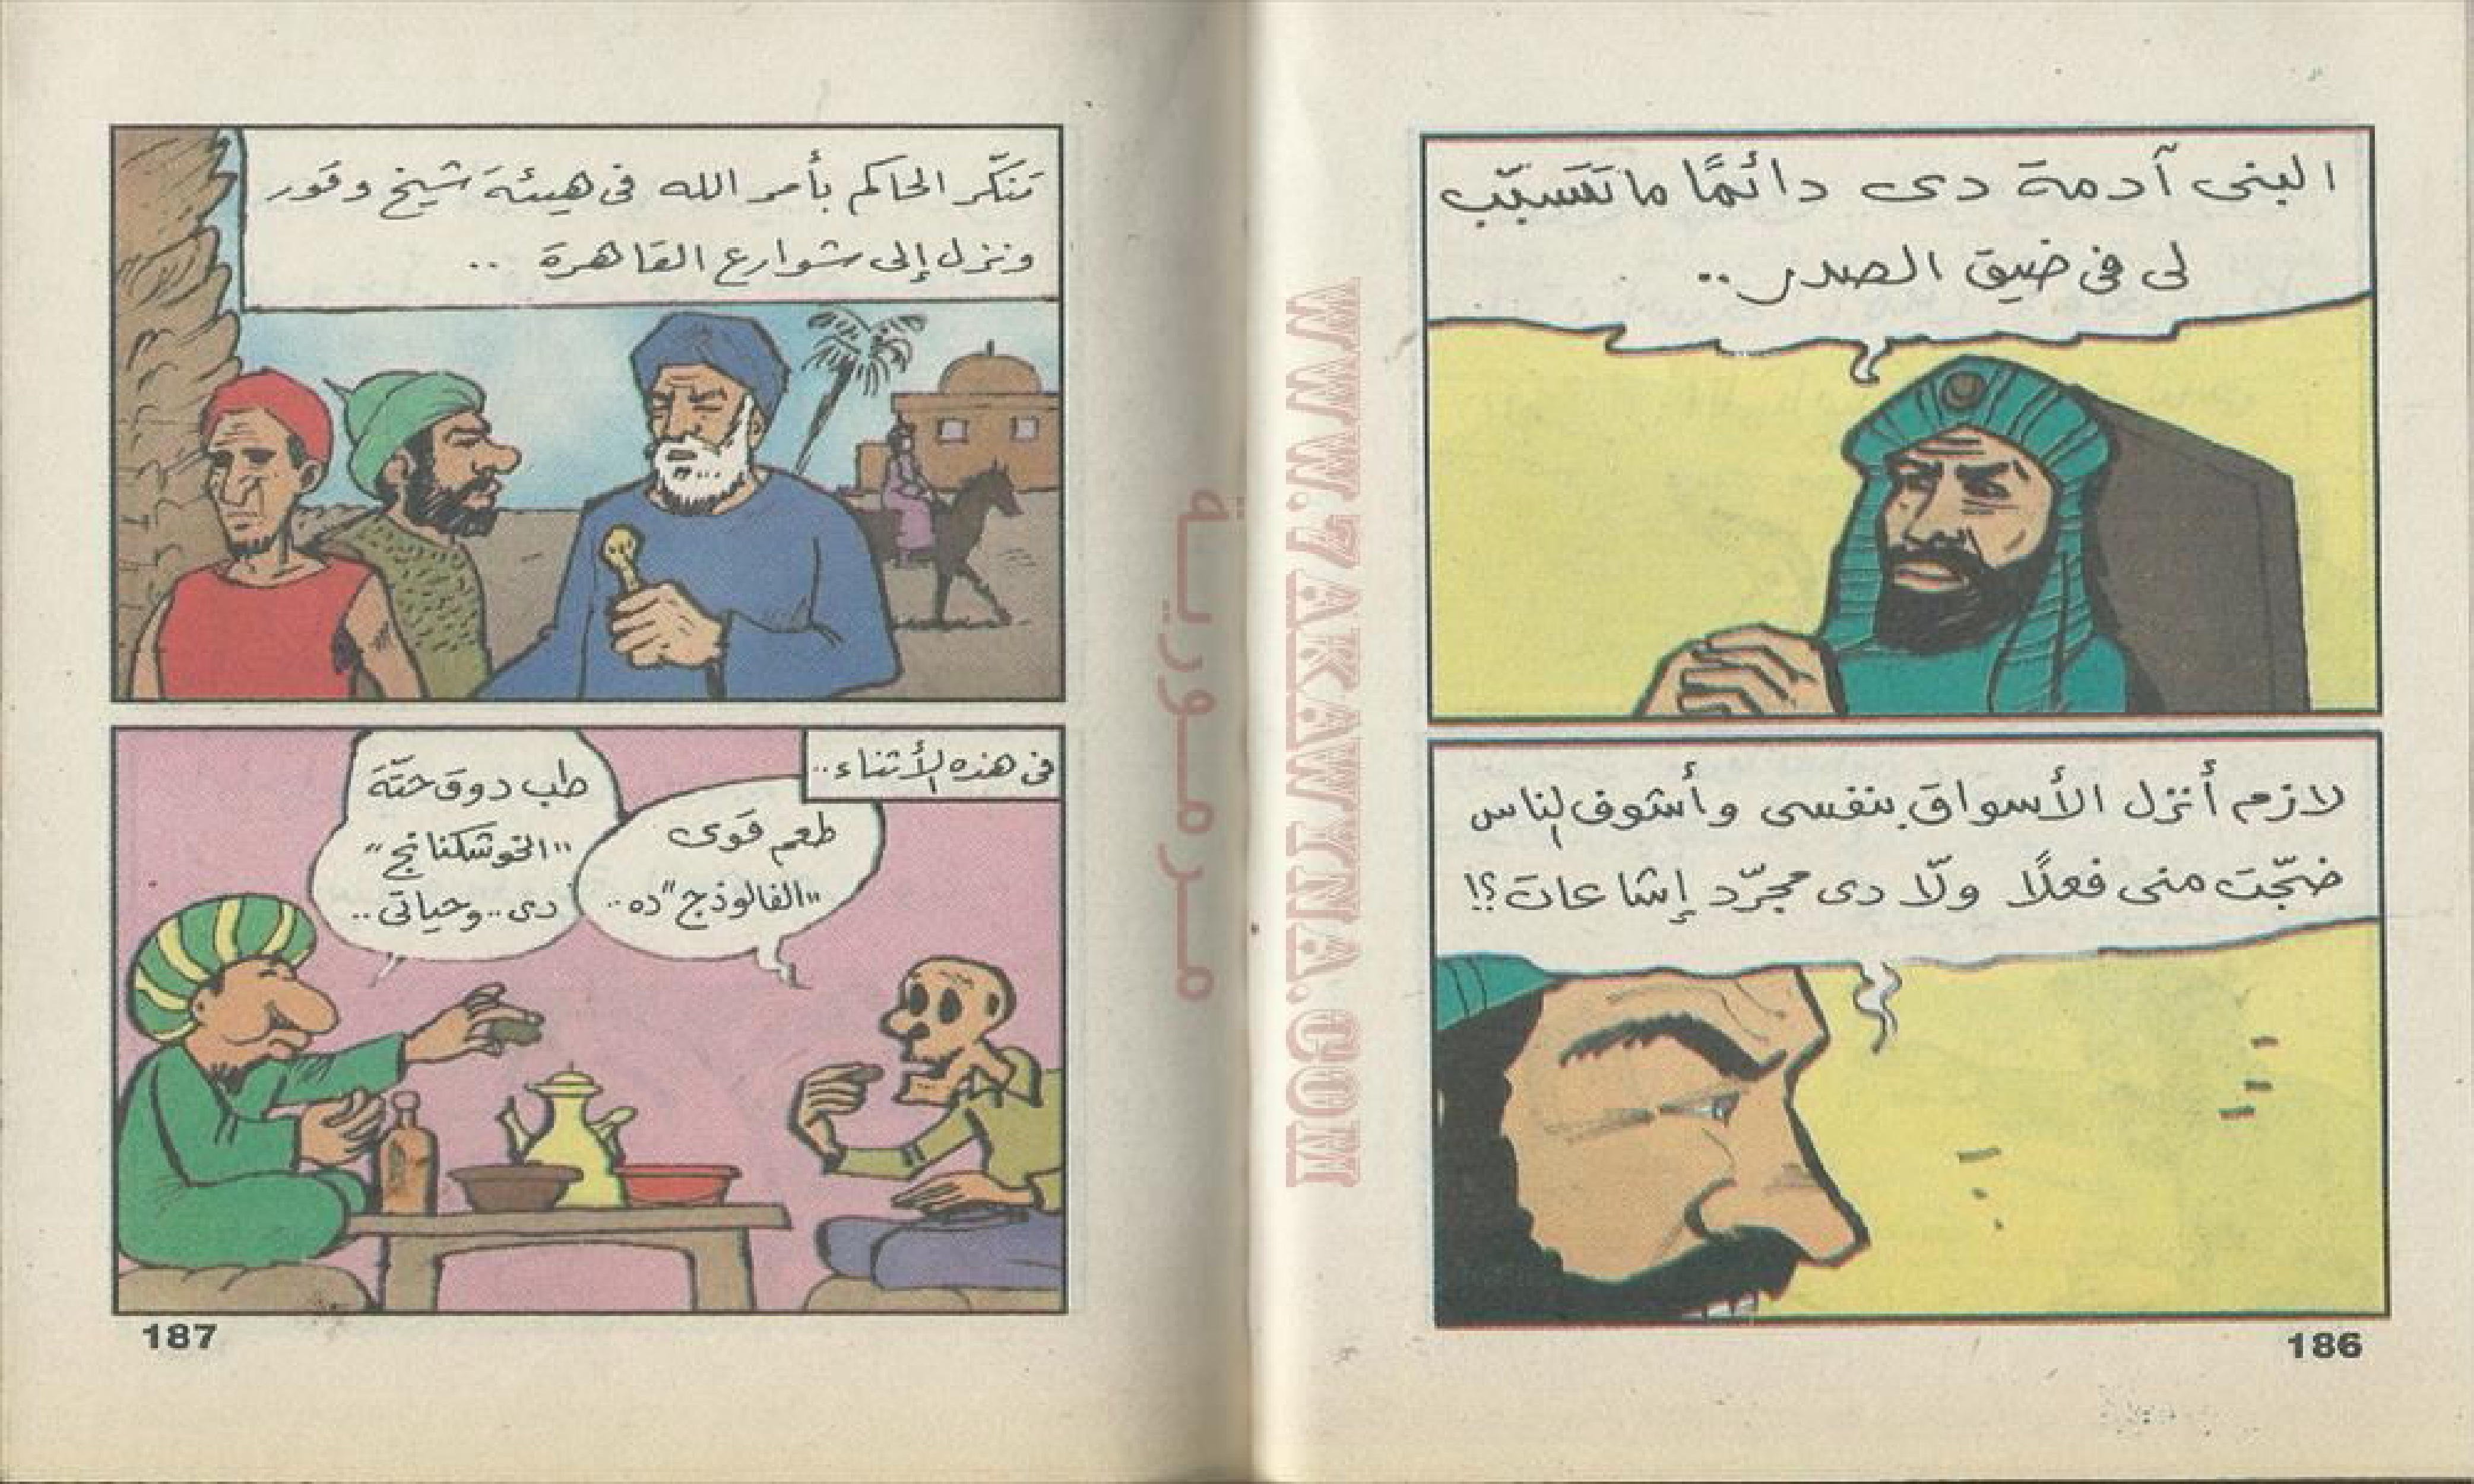 البنى آدمة دى دائمًا ما تتسبّب
لى فى ضيق الصدر..
لازم أنزل الأسواق بنفسى وأشوف الناس
ضجّت منى فعلًا ولّا دى مجرّد إشاعات؟!
186
WWW.ZAKAWYNA.COM
مرمورية
تنكّر الحاكم بأمر الله فى هيئة شيخ وقور
ونزل إلى شوارع القاهرة ..
فى هذه الأثناء..
طعم قوى
"الفالوذج" ده..
طب دوق حتّة
"الخوشكنانج"
دى.. وحياتى..
187